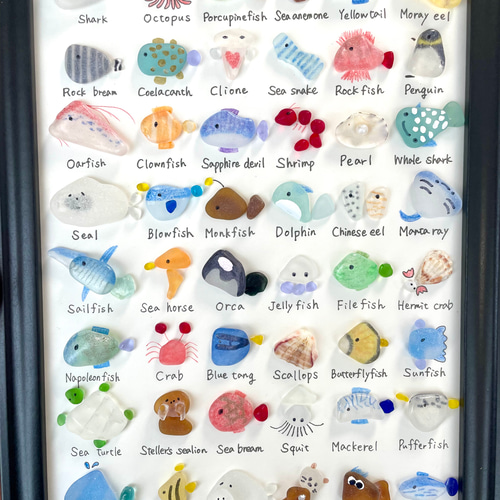 Shark Octopus Porcupinefish Sea anemone Yellowtail Moray eel
Rock bream Coelacanth Clione Sea snake Rock fish Penguin
Oarfish Clownfish Sapphire devil Shrimp Pearl Whale shark
Seal Blowfish Monkfish Dolphin Chinese eel Manta ray
Sailfish Sea horse Orca Jellyfish Filefish Hermit crab
Napoleonfish Crab Blue tang Scallops Butterflyfish Sunfish
Sea Turtle Steller's sealion Sea bream Squit Mackerel Pufferfish